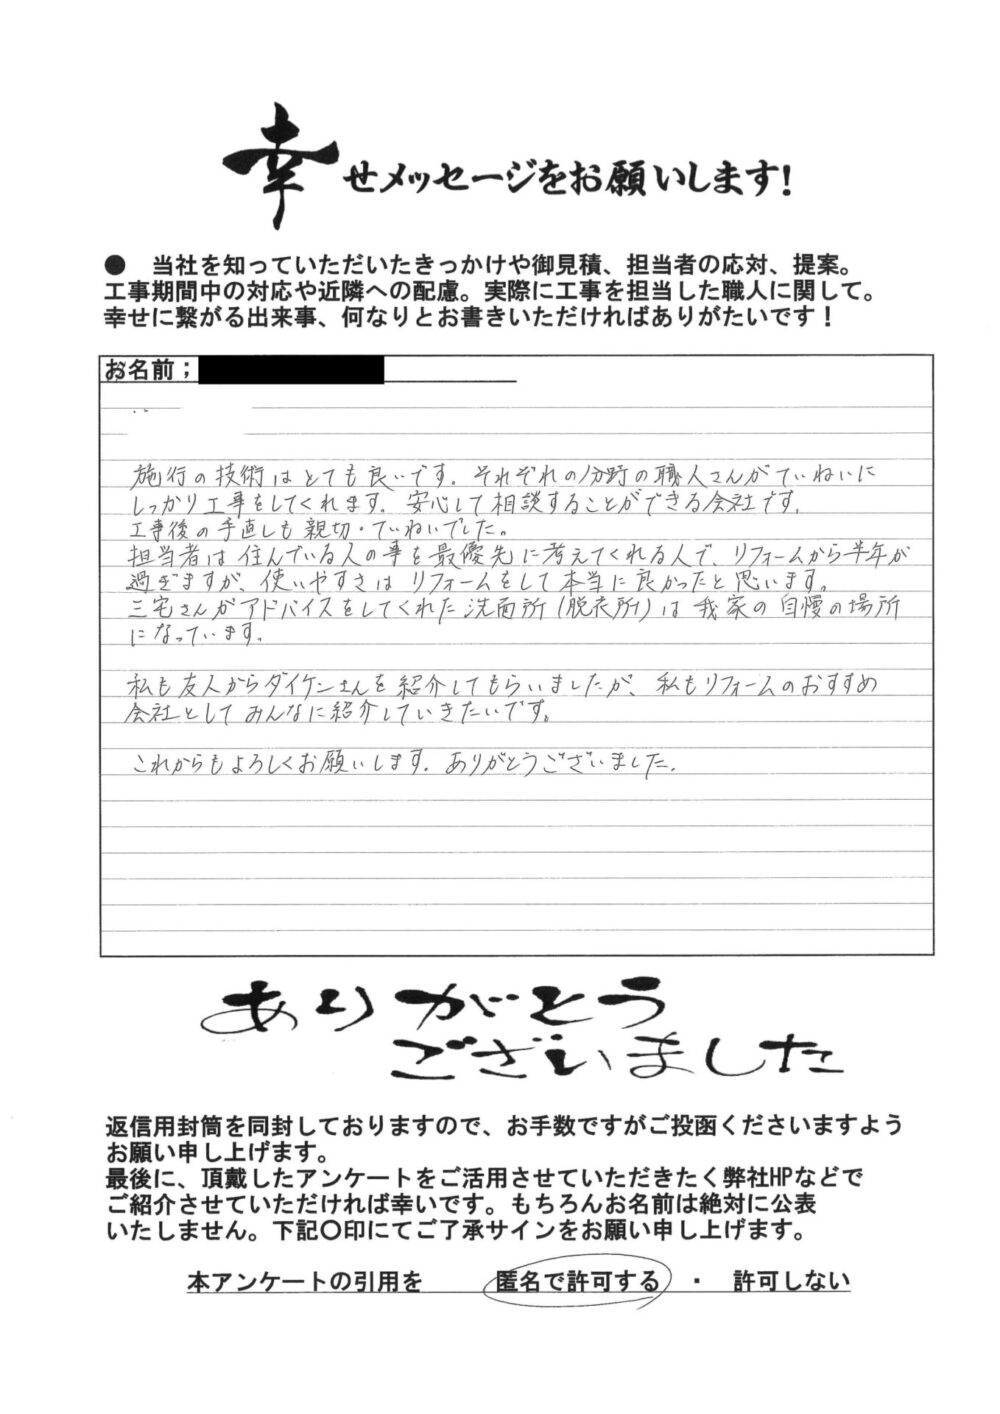 幸せメッセージをお願いします！
● 当社を知っていただいたきっかけや御見積、担当者の応対、提案。
工事期間中の対応や近隣への配慮。実際に工事を担当した職人に関して。
幸せに繋がる出来事、何なりとお書きいただければありがたいです！
お名前；
施行の技術はとても良いです。それぞれの分野の職人さんがていねいに
しっかり工事をしてくれます。安心して相談することができる会社です。
工事後の手直しも親切・ていねいでした。
担当者は住んでいる人の事を最優先に考えてくれる人で、リフォームから半年が
過ぎますが、使いやすさはリフォームをして本当に良かったと思います。
三宅さんがアドバイスをしてくれた洗面所（脱衣所）は我家の自慢の場所
になっています。
私も友人からダイケンさんを紹介してもらいましたが、私もリフォームのおすすめ
会社としてみんなに紹介していきたいです。
これからもよろしくお願いします。ありがとうございました。
ありがとう
ございました
返信用封筒を同封しておりますので、お手数ですがご投函くださいますよう
お願い申し上げます。
最後に、頂戴したアンケートをご活用させていただきたく弊社HPなどで
ご紹介させていただければ幸いです。もちろんお名前は絶対に公表
いたしません。下記〇印にてご了承サインをお願い申し上げます。
本アンケートの引用を 匿名で許可する ・ 許可しない